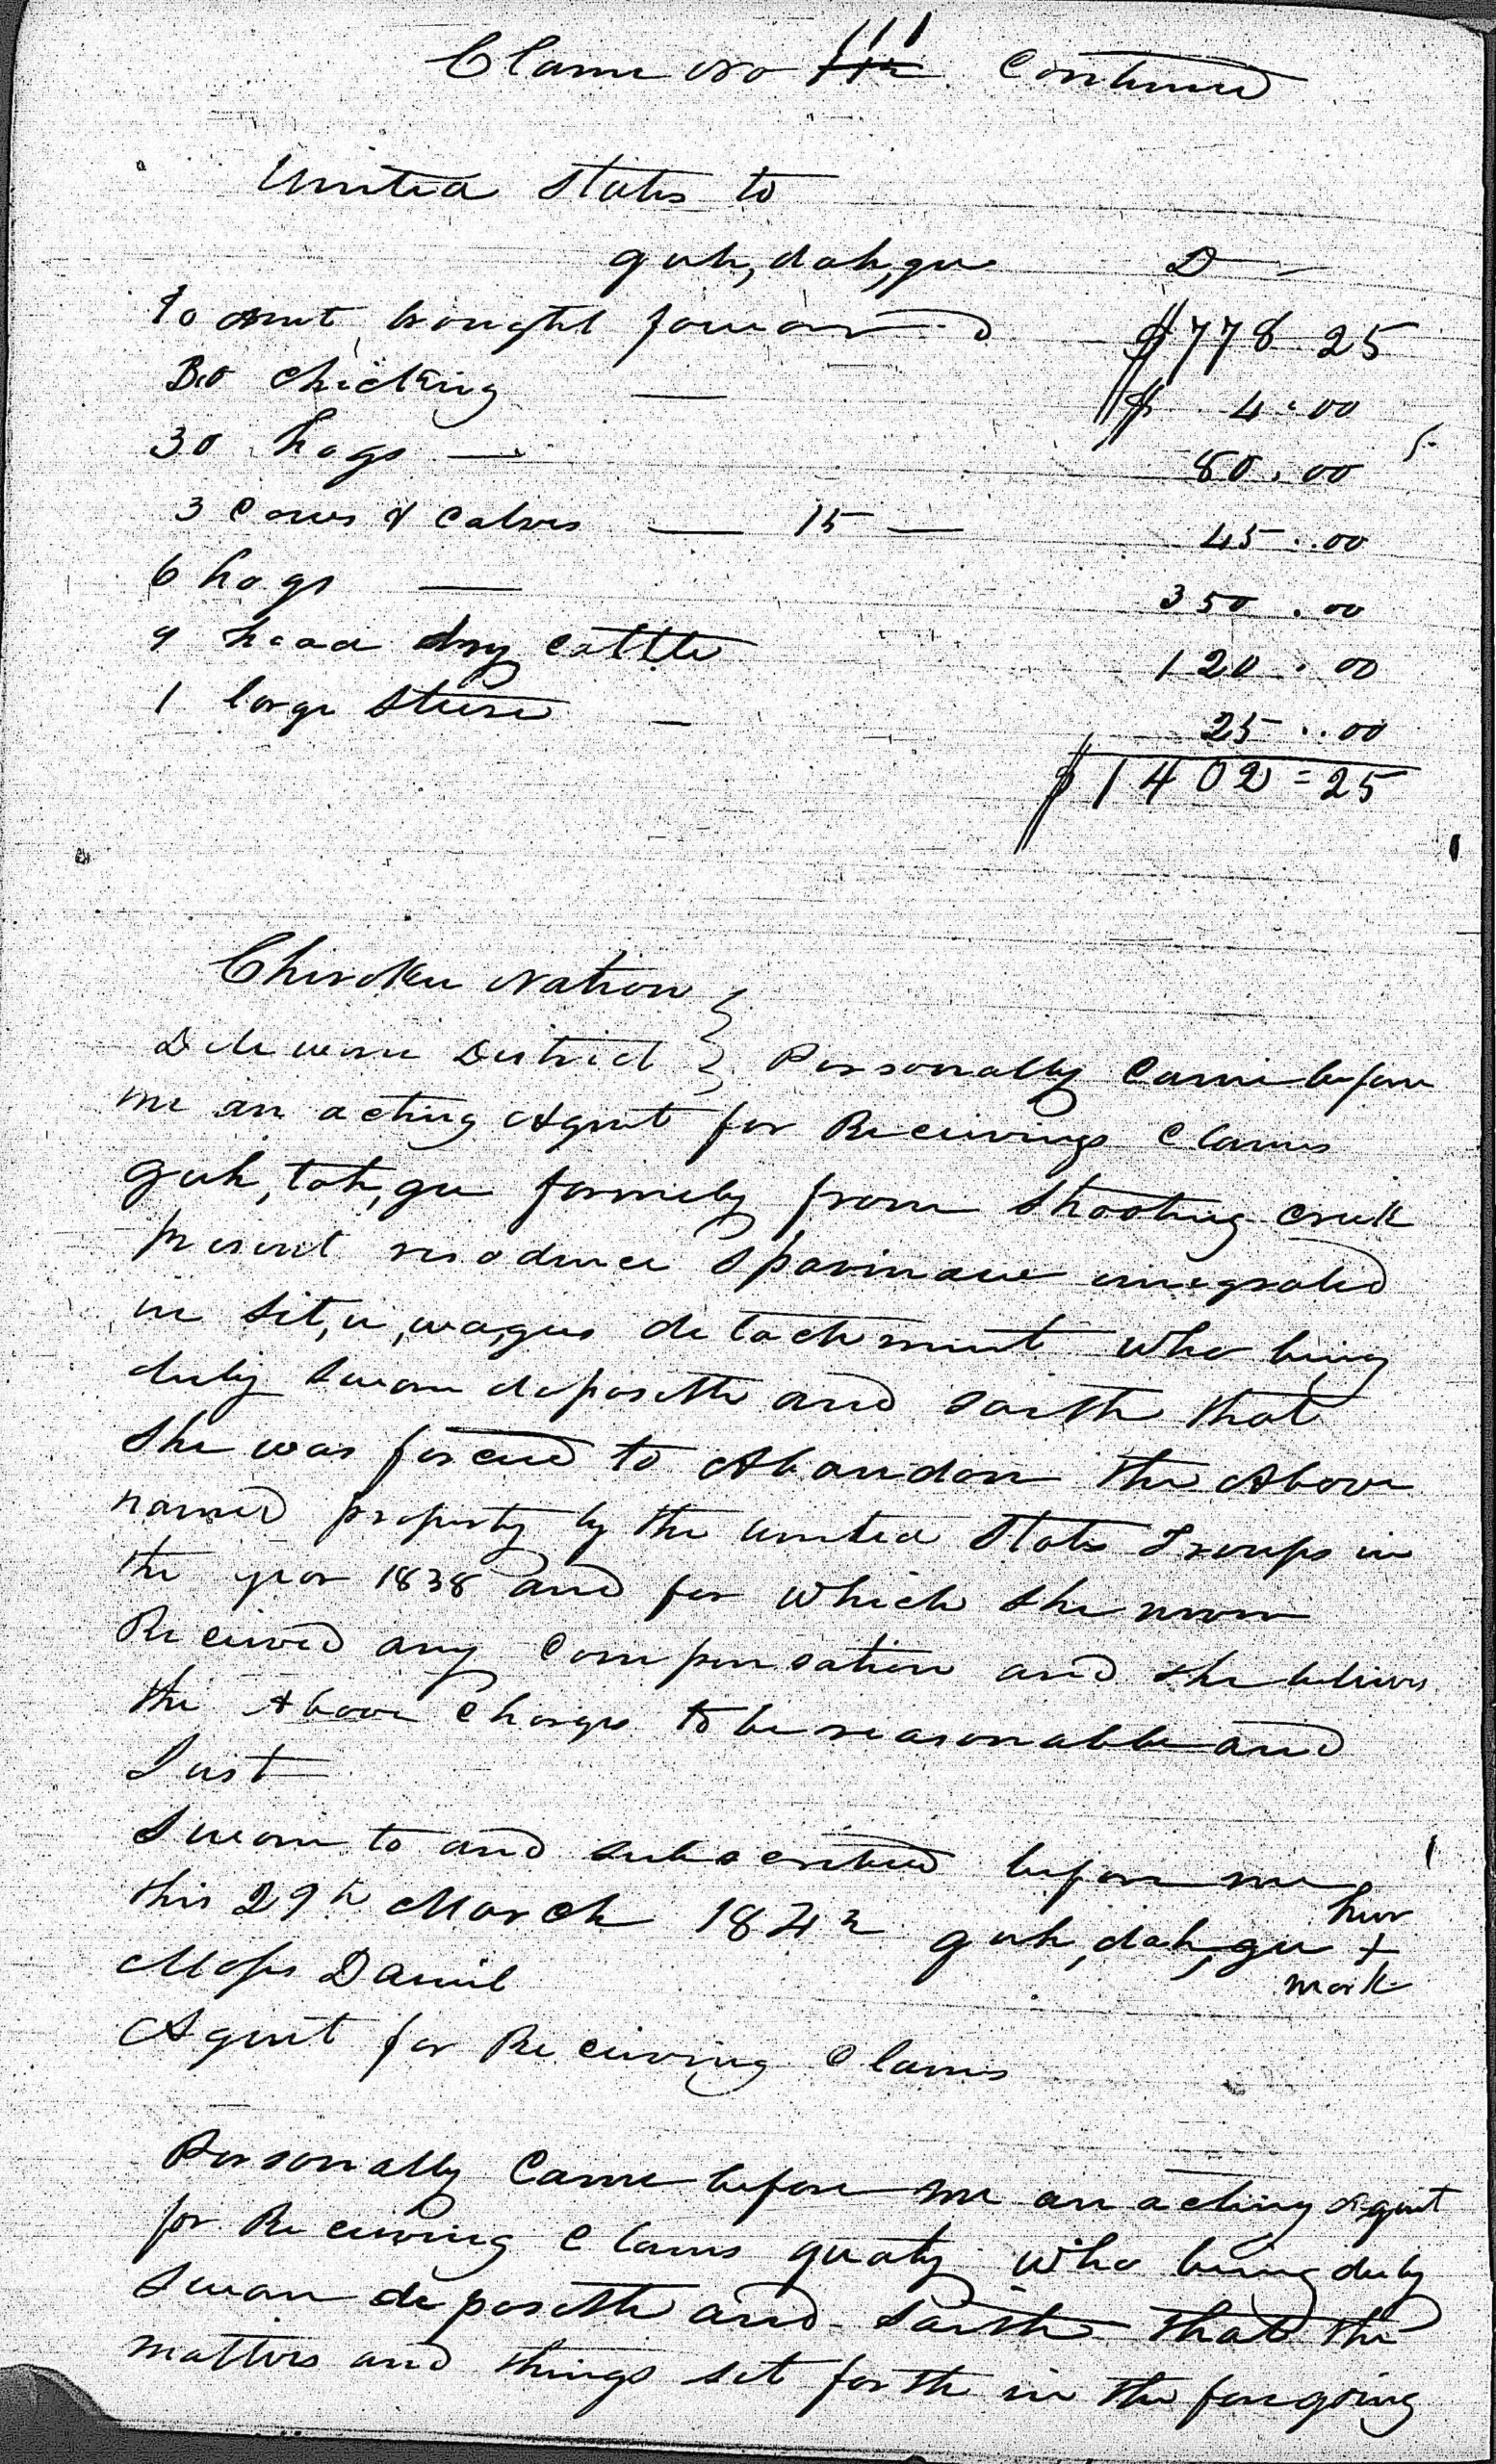 Claim No 111 Continued
United States to
guh, dah, gu D
To amt brought forward $778.25
Do chicking $4.00
30 hogs 80.00
3 Cows & Calves 15 45.00
6 hogs 350.00
9 head dry Cattle 120.00
1 large Steere 25.00
$1402=25
Chirokee Nation
Deleware District } Personally Came before
me an acting Agent for Receiving Claims
guh, tah, gu formely from Shooting creek
present residence Spavinaw emegrated
in Sit, u, wa, gus detachment who being
duly Sworn deposeth and saith that
She was forced to Abandon the Above
named property by the United States Troups in
the year 1838 and for which she never
Received any Compensation and she believes
the Above Charges to be reasonable and
Just
Sworn to and subscribed before me
this 29th March 1842 guh, dah, gu her
+
mark
Moses Daniel
Agent for Receiving Claims
Personally Came before me an acting Agent
for Receiving Claims quaty who being duly
Sworn deposeth and Saith that the
matters and things set forth in the foregoing